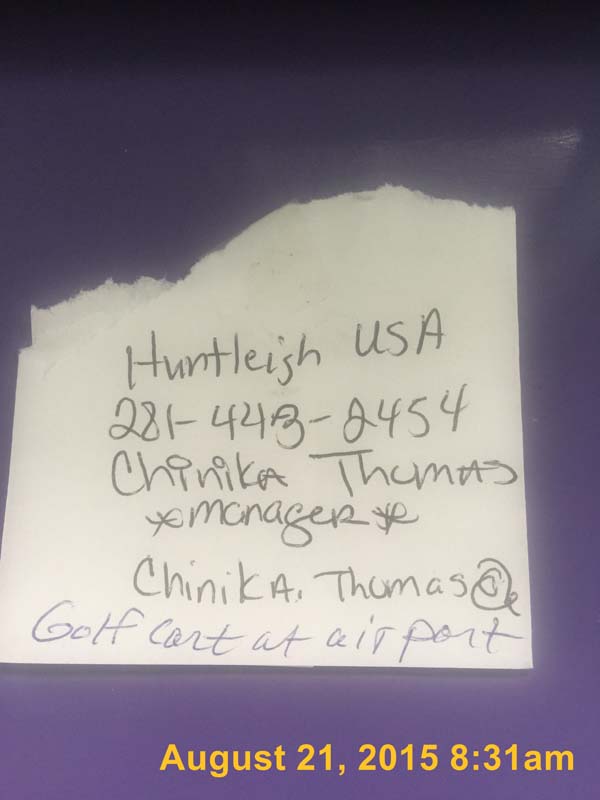 Huntleigh USA
281-443-2454
Chinika Thomas
*manager*
Chinika. Thomas@
Golf cart at airport
August 21, 2015 8:31am